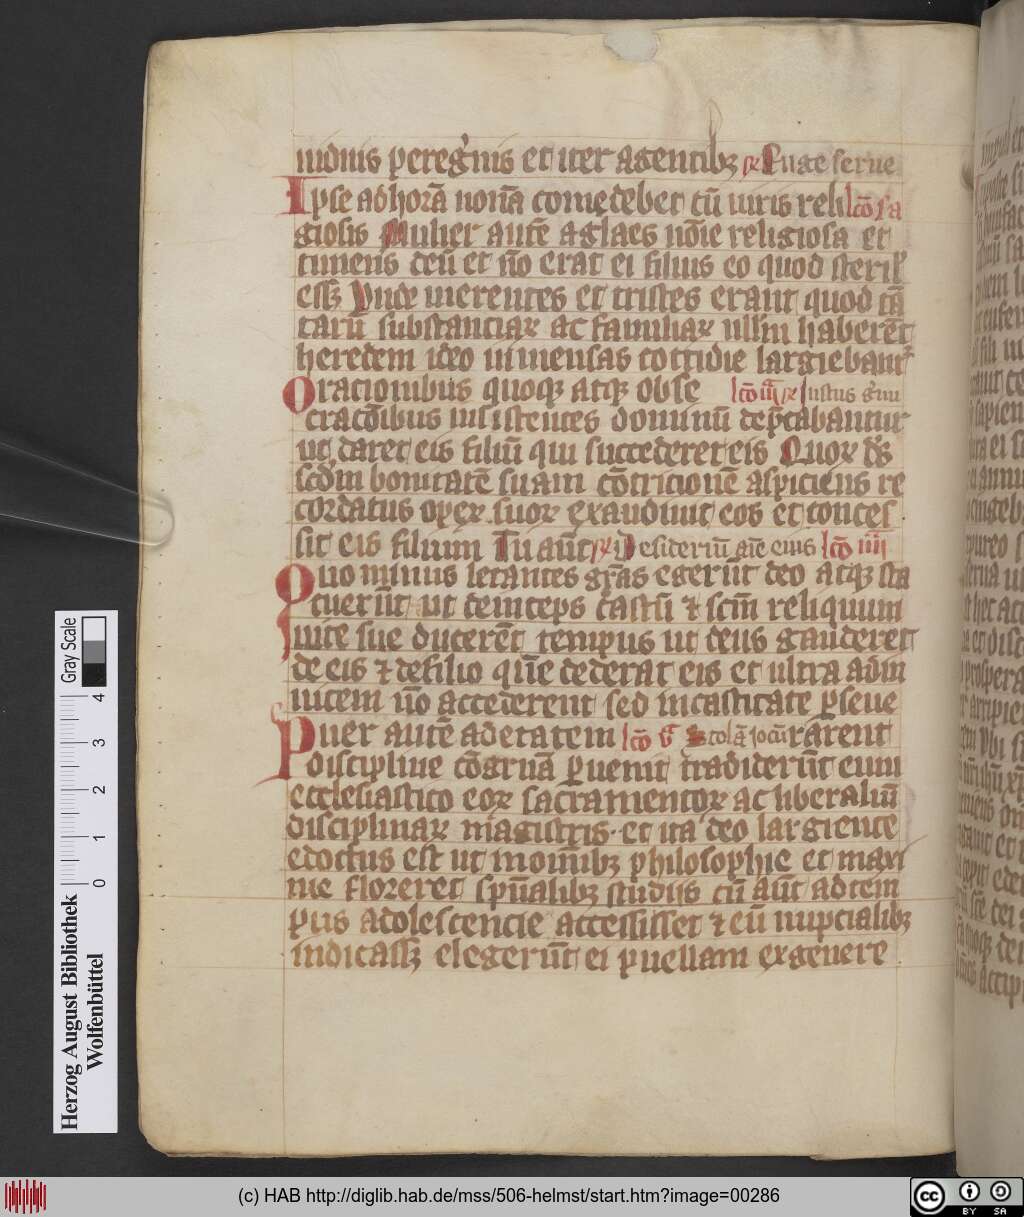 uiduis peregrīis et iter agentibꝫ ꝶ Euge serue
Ipse ad horā nonā comedebet cū uiris reli lc̄o sa
giosis Mulier autē aglaes nōīe religiosa et
timens deū et nō erat ei filius eo quod steril'
essꝫ Vnde merentes et tristes erant quod tā
tarū substanciaꝝ ac familiaꝝ ullm̄ haberēt
heredem ideo inmensas cottidie largiebant̄
Oracionibus quoqꝫ atqꝫ obse lc̄o iii ꝶ Iustus ḡmi
cracōibus insistentes dominū dep̄cabantur
ut daret eis filiū qui succederet eis Quoꝝ dn̄s
scdm̄ bonitatē suam cōtricionē aspiciens re
cordatus opeꝝ suoꝝ exaudiuit eos et conces
sit eis filium Tu aūt ꝶ Desideriū aīe eius lc̄o iiii
Quo minus letantes gr̄as egerūt deo atqꝫ sta
tuerūt ut deinceps castū ⁊ scm̄ reliquum
uite sue ducerēt tempus ut deus gauderet
de eis ⁊ de filio quē dederat eis et ultra ad in
uicem nō accederent sed in castitate ꝑseue
Puer autē ad etatem lc̄o v Scolā iocū rarent
discipline cōgruā ꝑuenit tradiderūt eum
ecclesiastico eoꝝ sacramentoꝝ ac liberaliū
disciplinaꝝ magistris · et ita deo largiente
edoctus est ut in omibꝫ philosophie et maxi
me floreret spūalibꝫ studiis cū aūt ad tem
pus adolescencie accessisset ⁊ eū nupcialibꝫ
indicassꝫ elegerūt ei puellam ex genere
Herzog August Bibliothek
Wolfenbüttel
0 1 2 3 4 Gray Scale
(c) HAB http://diglib.hab.de/mss/506-helmst/start.htm?image=00286
cc BY SA